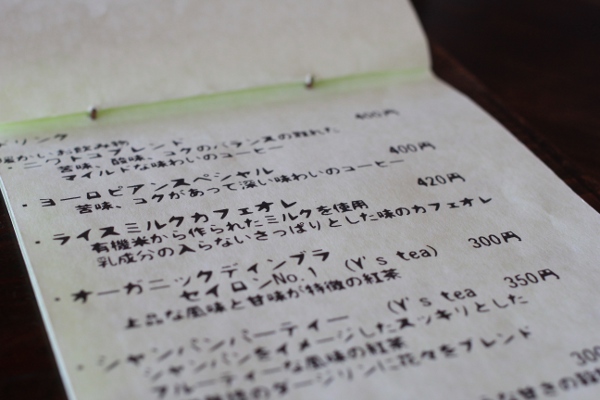 ドリンク
温かいお飲み物
・ニワトコブレンド 400円
苦味、酸味、コクのバランスの取れた
マイルドな味わいのコーヒー
・ヨーロピアンスペシャル 400円
苦味、コクがあって深い味わいのコーヒー
・ライスミルクカフェオレ 420円
有機米から作られたミルクを使用
乳成分の入らないさっぱりとした味のカフェオレ
・オーガニックディンブラ 300円
セイロンNo.1 (Y's tea)
上品な風味と甘味が特徴の紅茶
・シャンパンパーティー (Y's tea 350円
シャンパンをイメージしたスッキリとした
フルーティーな風味の紅茶
のダージリンに花々をブレンド
300
な甘さの